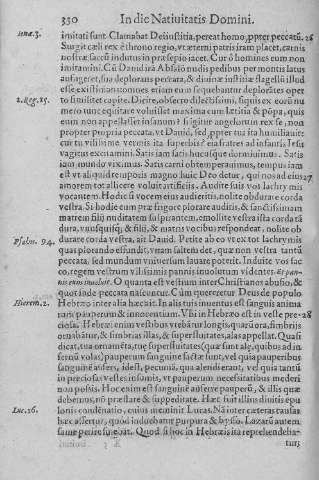 350 In die Natiuitatis Domini.
Ionæ.3. imitati sunt. Clamabat Dei iustitia, pereat homo, ppter peccatū. 26
Surgit cæli rex è throno regio, vt æterni patris iram placet, carnis
nostræ saccū indutus in præsepio iacet. Cur ô homines eum non
imitamini. Cū Dauid irā Absalō nudis pedibus per montis latus
aufugeret, sua deplorans peccata, & diuinæ iustitiæ flagellū illud
esse existimans omnes etiam eum sequebantur deplorātes oper
2.Reg.15. to similiter capite. Dicite, obsecro dilectissimi, siquis ex eorū nu
mero tunc equitare voluisset maxima cum lætitia & pōpa, quis
eum non appellasset insanum? Si igitur angelorum rex se, non
propter propria peccata, vt Dauid, sed, ppter tua ita humiliauit
cur tu vilissime vermis ita superbis? eia fratres ad insaniā. Iesu
vagitus exanimari. Satis iam satis hucusque dormiuimus. Satis
iam mundo vixmus. Satis carni obtemperauimus, tempus iam
est vt aliquid temporis magno huic Deo detur, qui nos ad eius 27
amorem tot allicere voluit artificijs. Audite suis vos lachrymis
vocantem. Hodie si vocem eius audieritis, nolite obdurare corda
vestra. Si hodie eum præ frigore plorare auditis, & sanctissimam
matrem filij nuditatem suspirantem, emollite vestra ista corda tā
dura, vnusquisq; & filij, & matris vocibus respondeat, nolite ob
Psalm.94. durare corda vestra, ait Dauid. Petite ab eo vt ex tot lachrymis
quas plorando effundit, vnam saltem det, quæ non vestra tantū
peccata, sed mundum vniuersum lauare poterit. Induite vos sac
co, regem vestrum vilissimis pannis inuolutum videntes. Et pan-
nis eum inuoluit. O quanta est vestrum inter Christianos abusio, &
quot inde peccata nascuntur. Cùm quereretur Deus de populo
Hierem.2. Hebræo inter alia hæc ait. In alis tuis inuentus est sanguis anima
rum pauperum & innocentium. Vbi in Hebræo est in veste pre- 28
ciosa. Hebræi enim vestibus vtebātur longis, quas ora, fimbrijs
ornabātur, & fimbrias illas, & superfluitates, alas appellat. Quasi
dicat, tua ornamēta, tuę superfluitates (quæ sunt ale, quibus ad in
fernū volas) pauperum sanguine factæ sunt, vel quia pauperibus
sanguinē assers, idest, pecuniā, qua alendi erant, vel quia tantū
in preciosa vestes insumis, vt pauperum necessitatibus mederi
non possis. Hoc enim est sanguinē asserre pauperū, & illis quæ
debemus, nō præstare & suppeditare. Hæc fuit illius diuitis epu
Luc.16. lonis condēnatio, cuius meminit Lucas. Nā inter cæteras causas
hæc assertur, quod induebatur purpura & bysso. Lazarū autem
fame perire sinebat. Quod si hoc in Hebræis ita reprehendeba-
tur,